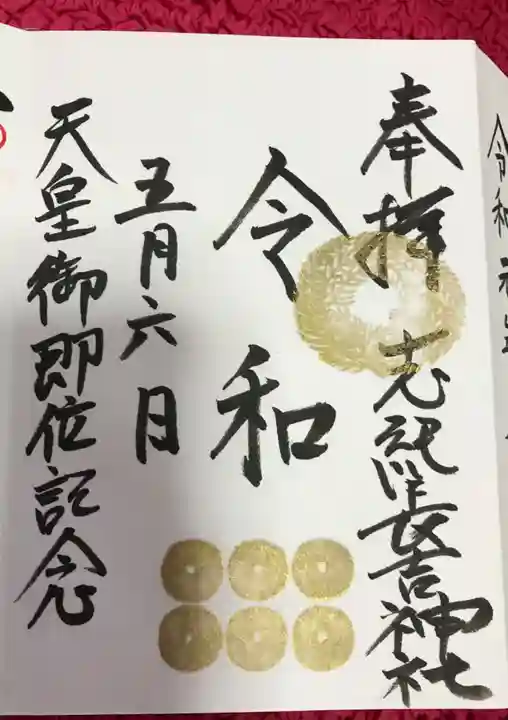 令和元年
奉拝 志紀長吉神社
令和
五月六日
天皇御即位記念